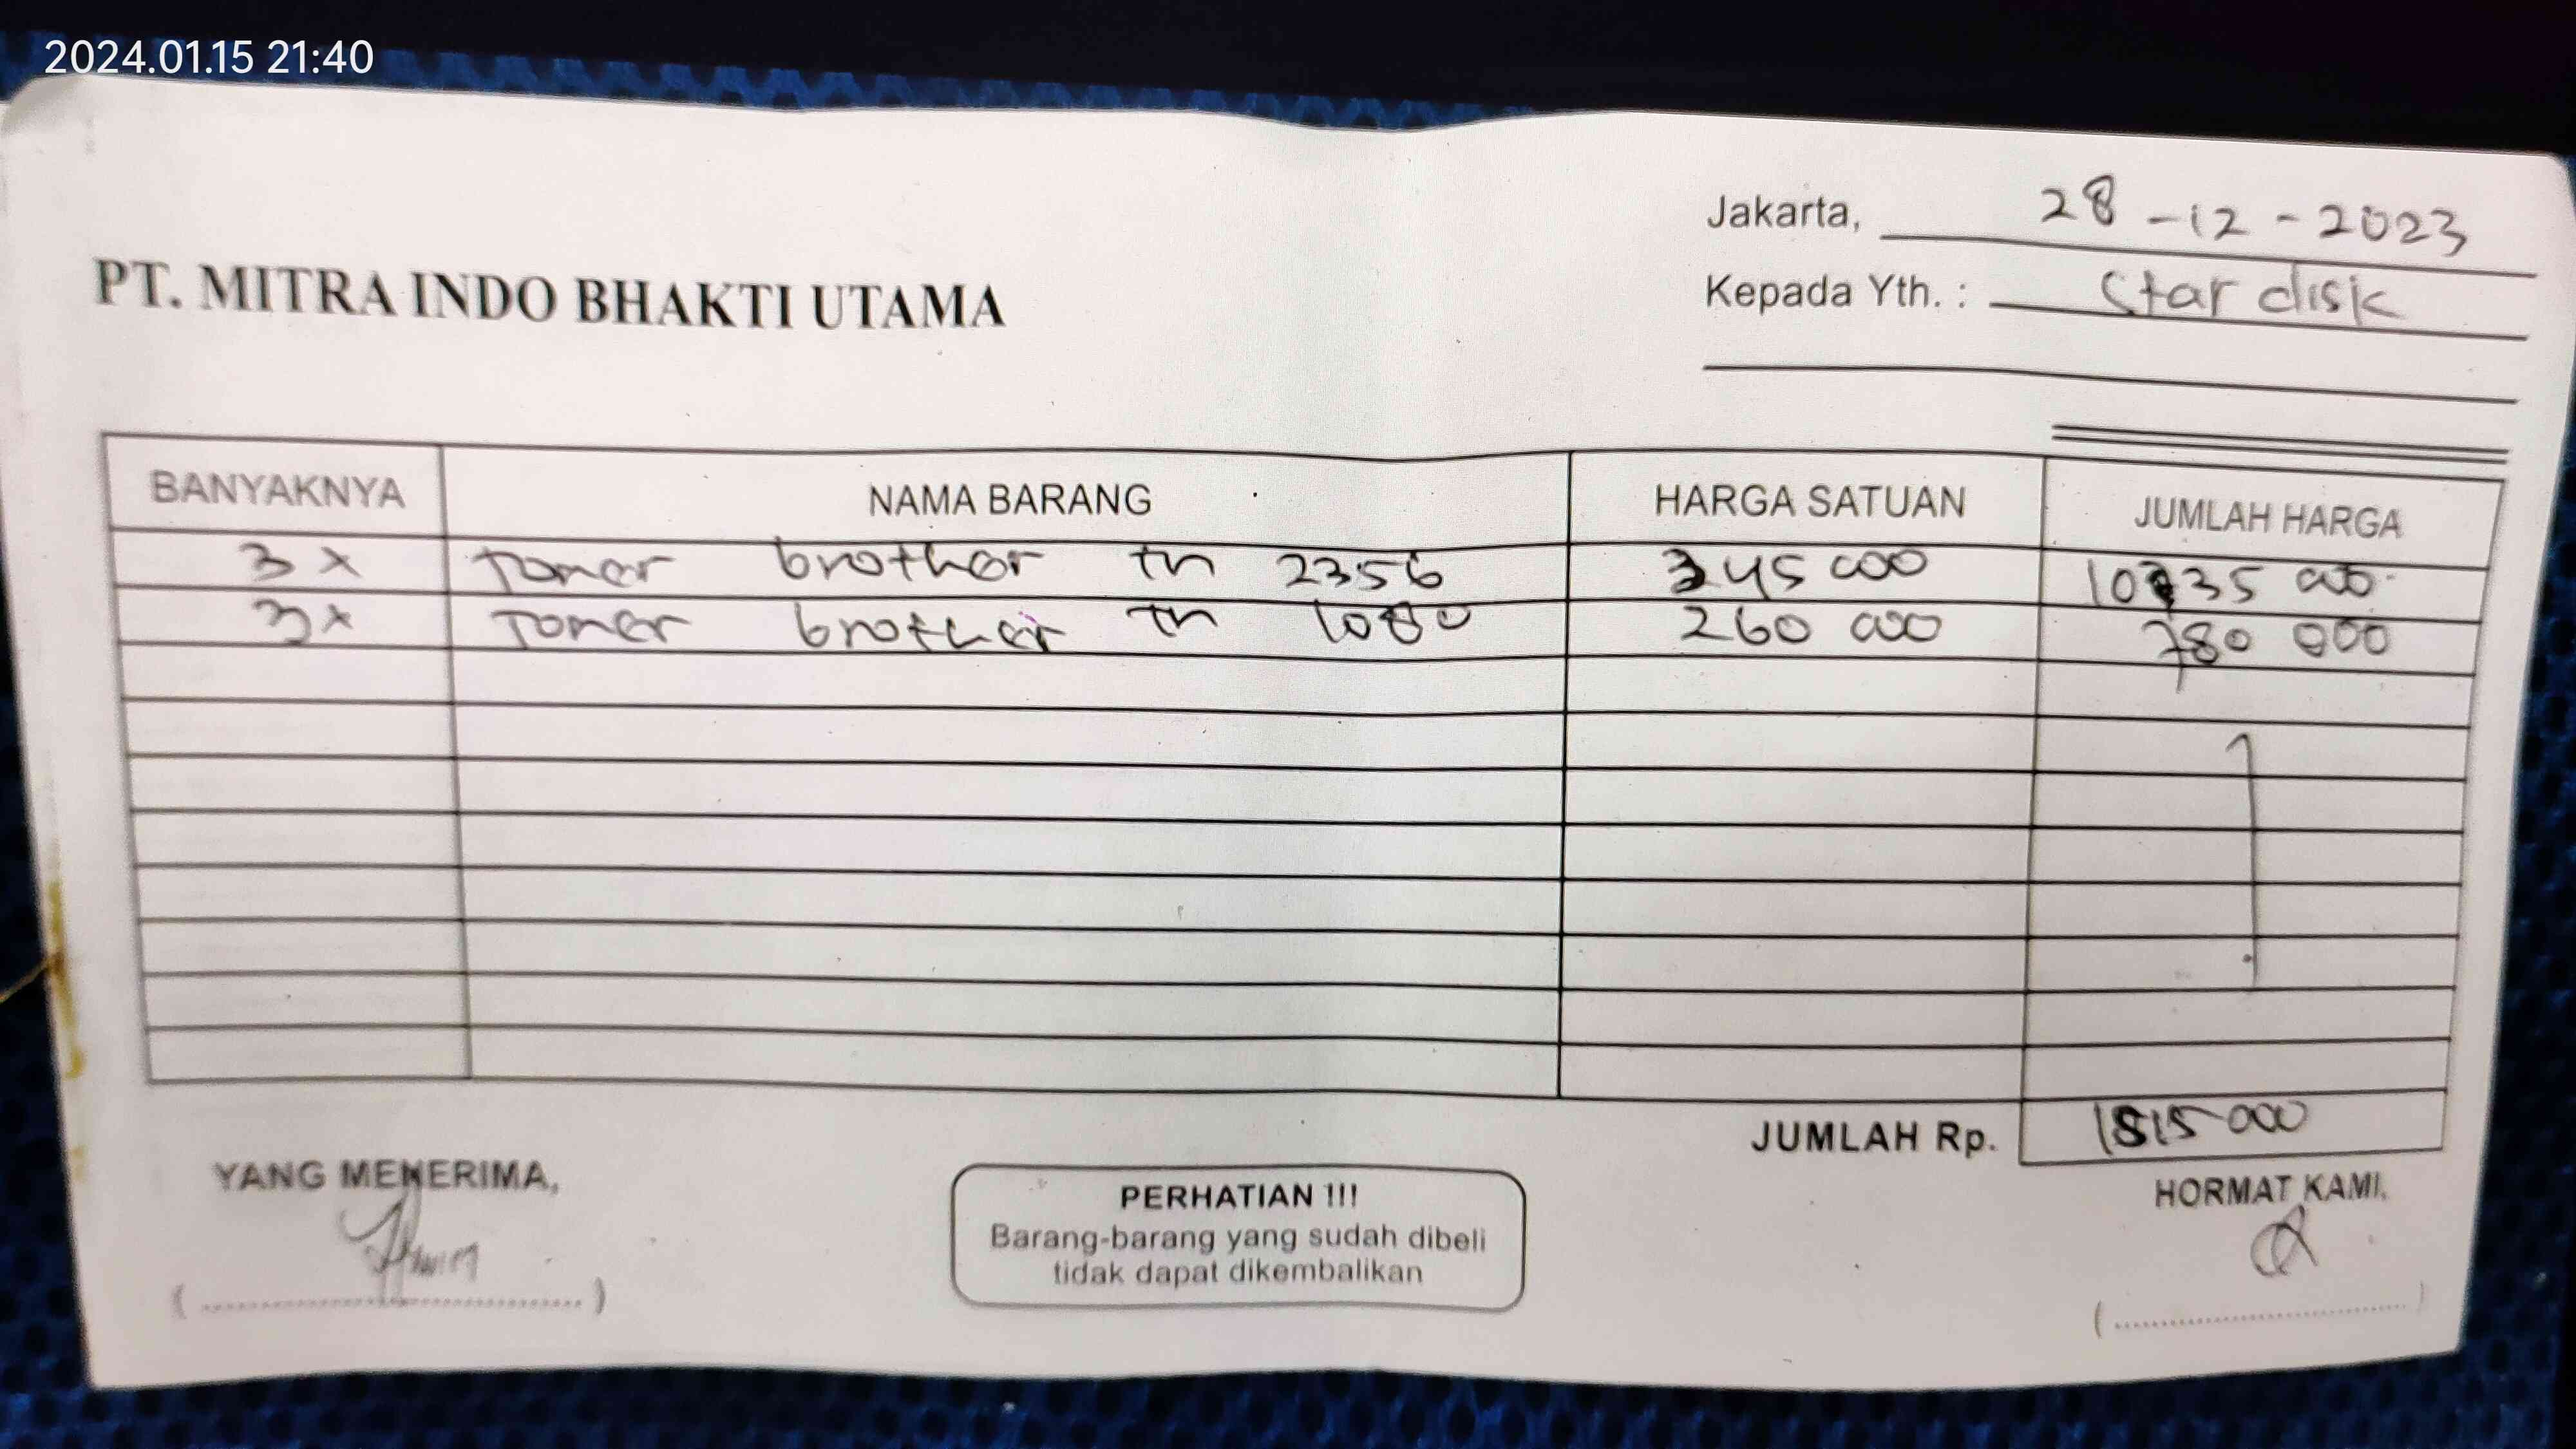 2024.01.15 21:40
Jakarta, 28-12-2023
Kepada Yth. : Star disk
PT. MITRA INDO BHAKTI UTAMA
BANYAKNYA NAMA BARANG HARGA SATUAN JUMLAH HARGA
3x Toner brother tn 2356 345 000 1035 000
3x Toner brother tn 1080 260 000 780 000
JUMLAH Rp. 1815 000
YANG MENERIMA,
PERHATIAN !!!
Barang-barang yang sudah dibeli
tidak dapat dikembalikan
HORMAT KAMI,